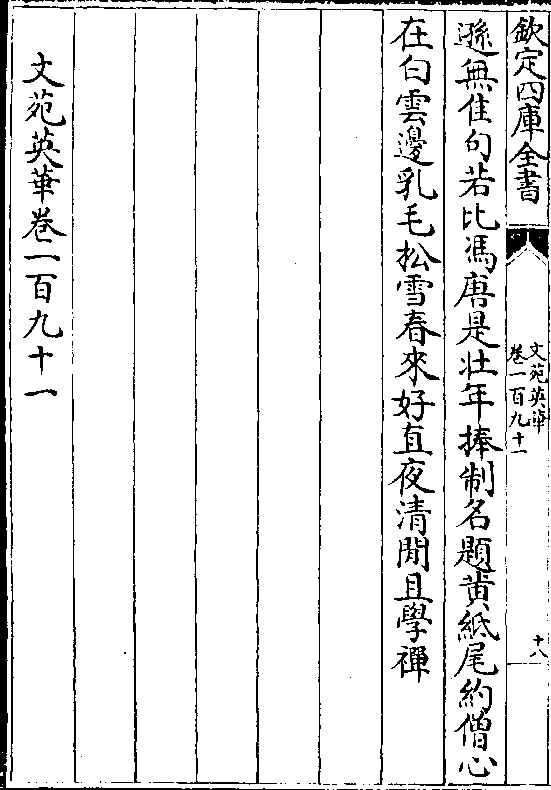 欽定四庫全書
文苑英華
卷一百九十一
十八
遜無佳句若比馮唐是壯年捧制名題黄紙尾約僧心
在白雲邊乳毛松雪春來好直夜清閒且學禪
文苑英華卷一百九十一